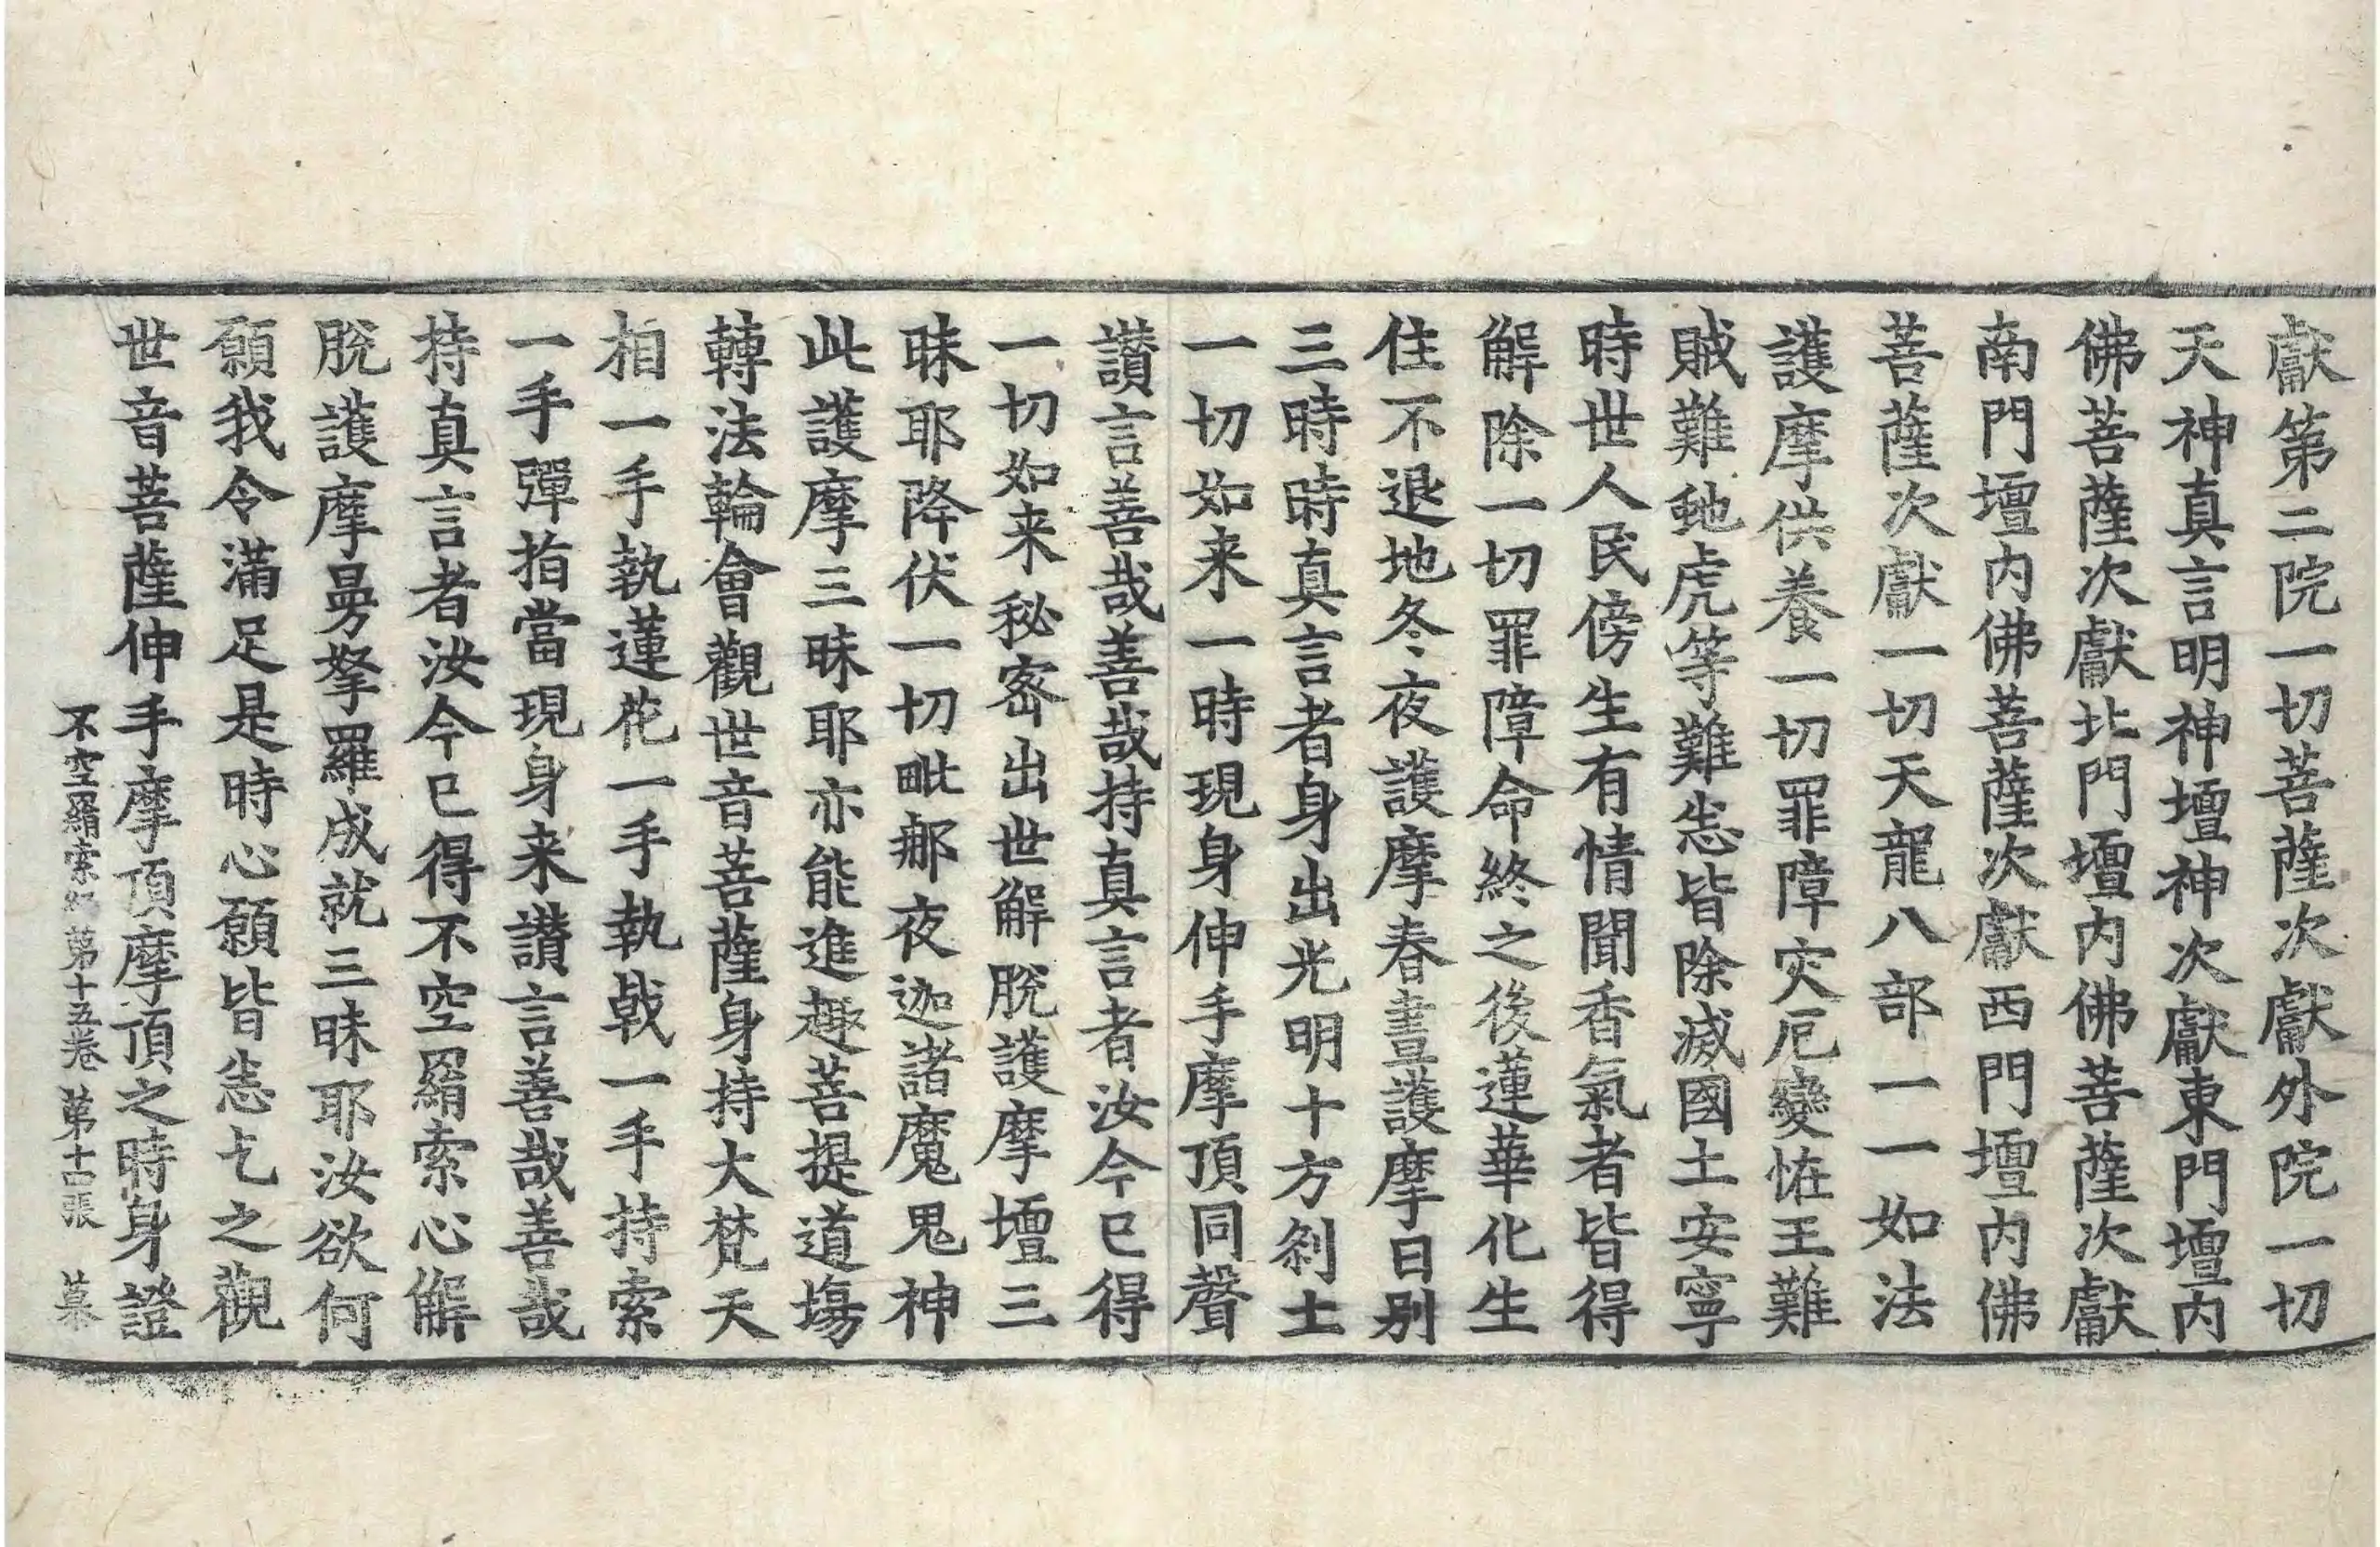 獻第二院一切菩薩次獻外院一切
天神真言明神壇神次獻東門壇内
佛菩薩次獻北門壇内佛菩薩次獻
南門壇内佛菩薩次獻西門壇内佛
菩薩次獻一切天龍八部一一如法
護摩供養一切罪障灾厄變恠王難
賊難虵虎等難悉皆除滅國土安寧
時世人民傍生有情聞香氣者皆得
解除一切罪障命終之後蓮華化生
住不退地冬夜護摩春晝護摩日別
三時時真言者身出光明十方剎土
一切如来一時現身伸手摩頂同聲
讃言善哉善哉持真言者汝今已得
一切如来秘密出世解脫護摩壇三
昧耶降伏一切毗那夜迦諸魔鬼神
此護摩三昧耶亦能進趣菩提道場
轉法輪會觀世音菩薩身持大梵天
相一手執蓮花一手執戟一手持索
一手彈指當現身来讃言善哉善哉
持真言者汝今已得不空羂索心解
脫護摩曼拏羅成就三昧耶汝欲何
願我令滿足是時心願皆悉乞之觀
世音菩薩伸手摩頂摩頂之時身證
不空羂索經第十五卷 第十四張 莫